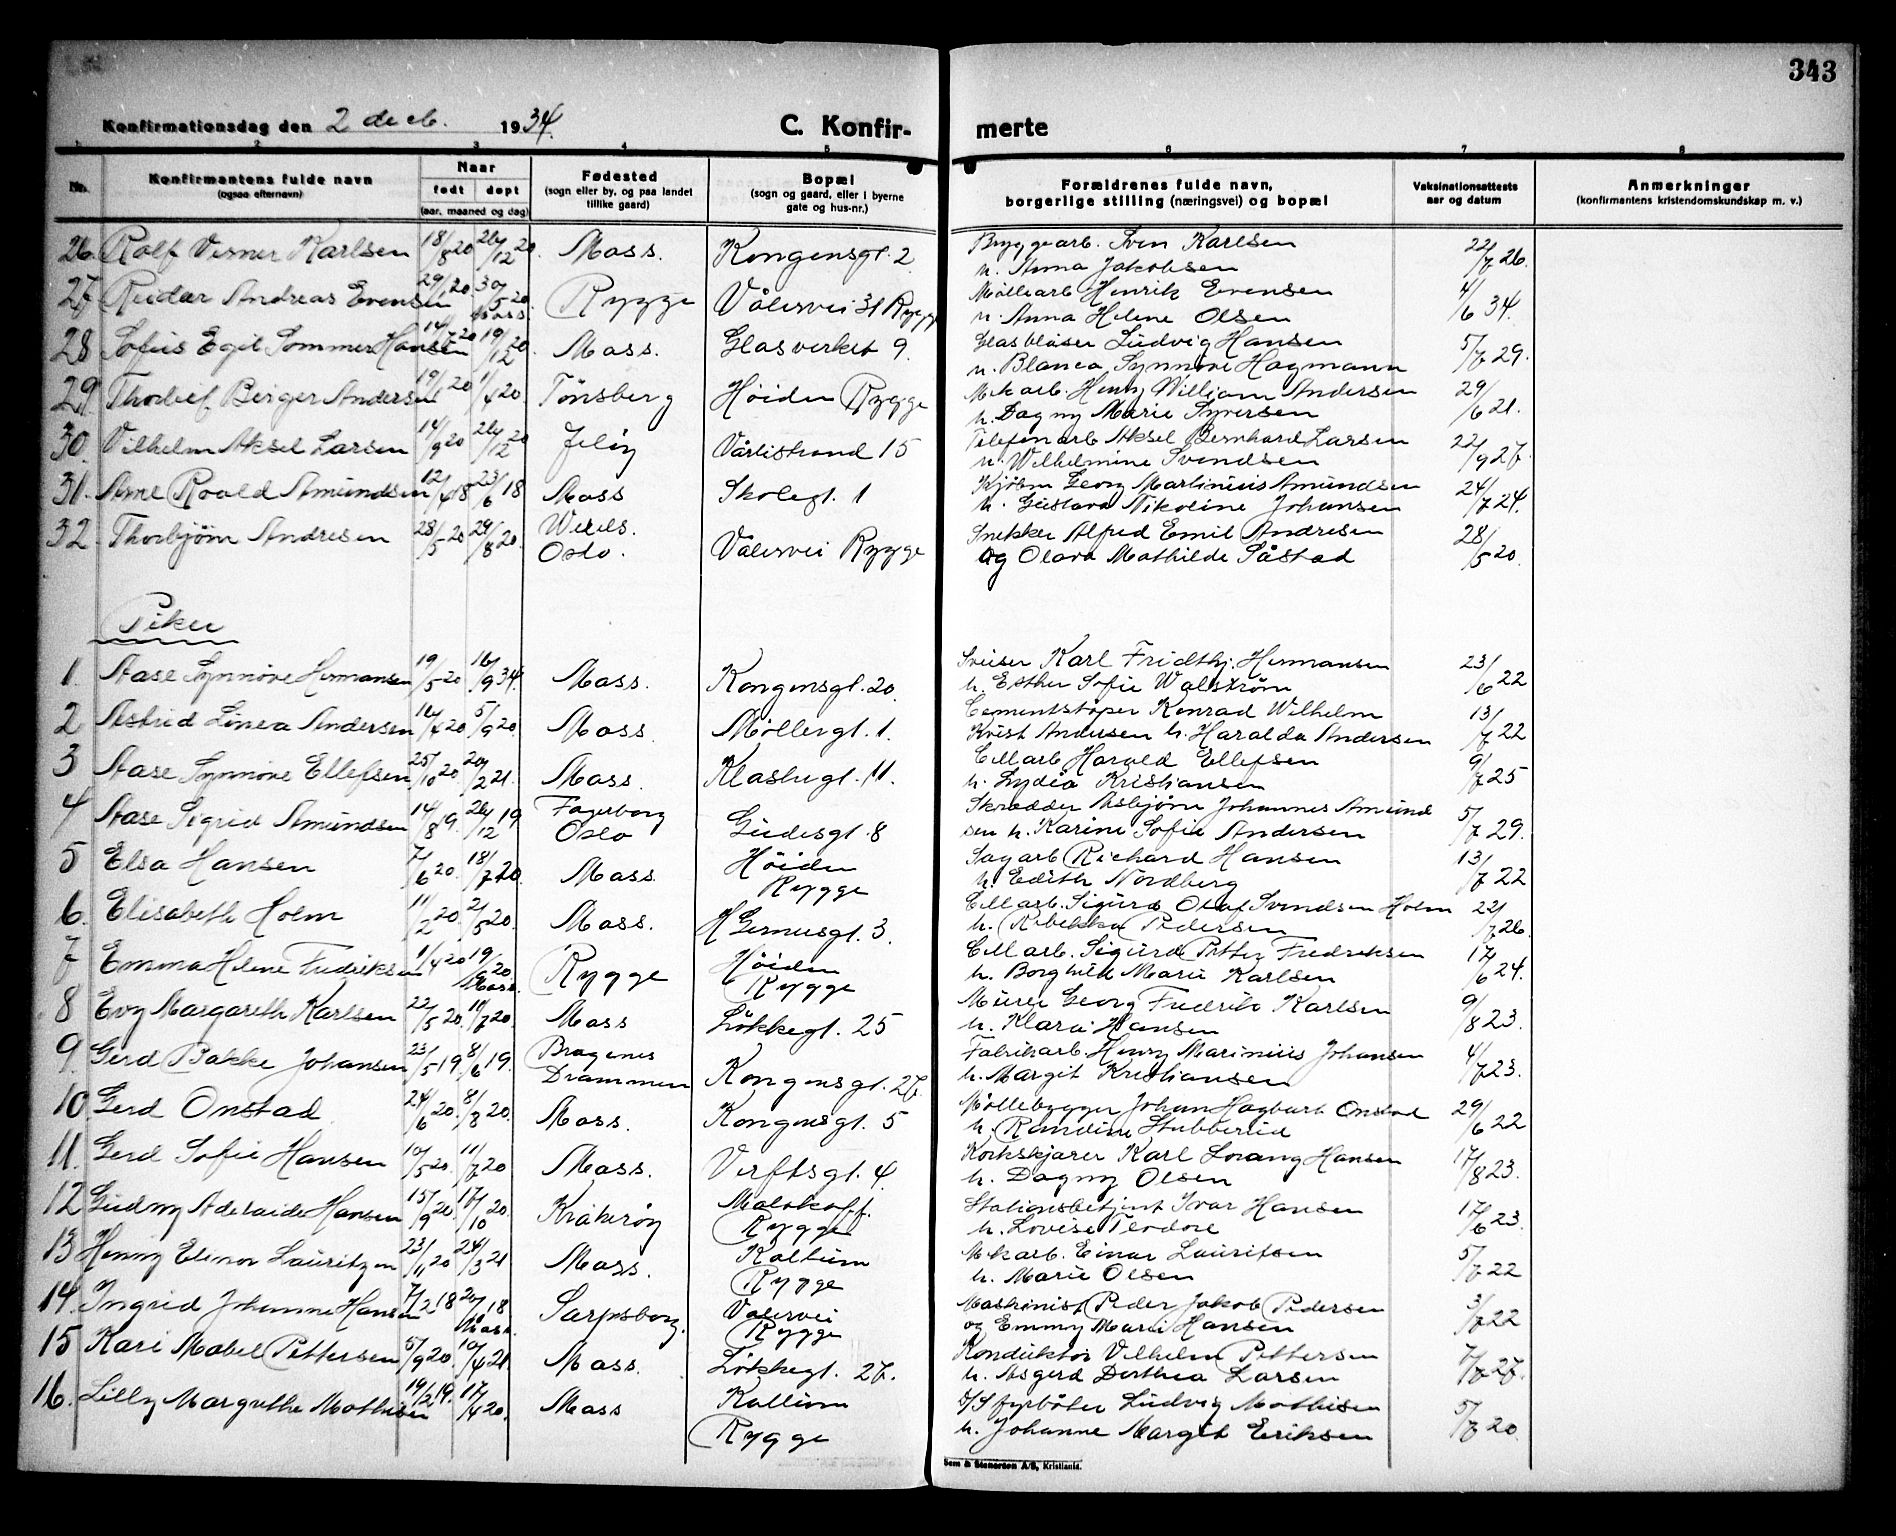 343
Konfirmationsdag den 2 decb. 1934.
C. Konfir- merte
1 2 3 4 5 6 7 8
Nr.
Konfirmantens fulde navn
(ogsaa efternavn)
Naar
født døpt
(aar, maaned og dag)
Fødested
(sogn eller by, og paa landet
tillike gaard)
Bopæl
(sogn og gaard, eller i byerne
gate og hus-nr.)
Forældrenes fulde navn,
borgerlige stilling (næringsvei) og bopæl
Vaksinationsattests
aar og datum
Anmerkninger
(konfirmantens kristendomskundskap m. v.)
26. Rolf Verner Karlsen 18/8 20 26/12 20. Moss. Kongensgt. 2 Bryggearb. Sven Karlsen 22/7 26.
u. Anna Jakobsen
27 Reidar Andreas Evensen 29/ 20. 30/5 20 Moss. Rygge Vålervei 31 Rygge Møllearb Henrik Evensen 4/6 34.
u. Anna Helene Olsen
28 Sofus Egil Sommer Hansen 14/ 20 19/12 20. Moss. Glasverket 9. Glasblåser Ludvig Hansen 5/7 29.
u. Blanca Synnøve Hagmann
29. Thorleif Birger Andersen 19/ 20 1/4 20 Tønsberg Høiden Rygge Mek arb. Henry William Andersen 29/6 21.
u. Dagny Marie Syversen
30. Vilhelm Aksel Larsen 14/9 20 26/12 20 Jeløy Vårlistrand 15 Telefonarb Aksel Bernhard Larsen 22/9 27.
u. Wilhelmine Svendsen
31. Arne Roald Amundsen 12/4 18 23/6 18 Moss Skolegt. 1 Kjøbm Georg Martinius Amundsen 24/7 24.
u. Gustava Nikoline Johansen
32 Thorbjørn Andresen 28/5 20 29/8 20. Oslo. Vålervei Rygge Snekker Alfred Emil Andresen 28/5 20.
og Olava Mathilde Såstad
Piker
1. Aase Synnøve Hermansen 19/5 20 16/9 34. Moss. Kongensgt. 20. Sveiser Karl Fridthj. Hermansen 23/6 22
u. Esther Sofie Walstrøm
2 Astrid Linea Andersen 16/4 20 5/9 20. Moss. Møllergt. 1. Cementstøper Konrad Wilhelm 13/7 22
Krist Andersen u. Haralda Andersen
3 Aase Synnøve Ellefsen 25/10 20 20/2 21. Moss. Klostergt. 11. Cell arb Harald Ellefsen 9/7 25
u. Lydia Kristiansen
4 Aase Sigrid Amundsen 14/8 19. 26/12 19 Fagerborg Oslo Gudesgt. 8 Skrædder Asbjørn Johannes Amund 5/7 29.
sen u. Karine Sofie Andersen
5 Elsa Hansen 7/6 20. 18/7 20. Moss. Høiden Rygge Sagarb Richard Hansen 13/7 22
u. Edith Nordberg
6. Elisabeth Holm 11/2 20. 2/5 20. Moss. H Gernersgt. 3. Cell arb. Sigurd Olaf Svendsen Holm 22/7 26.
u. Rebekka Pedersen
7 Emma Helene Fredriksen 1/4 20 19/9 20. Moss. Rygge Høiden Rygge Cell arb. Sigurd Petter Fredriksen 17/6 24.
u. Borghild Marie Karlsen
8 Evy Margareth Karlsen 22/5 20. 10/7 20. Moss Løkkegt. 25 Murer Georg Fredrik Karlsen 9/8 23.
u. Klara Hansen
9. Gerd Bakke Johansen 23/5 19. 8/6 19. Bragenes Drammen Kongensgt. 27. Fabrikarb. Henry Marinius Johansen 4/7 23.
u. Margit Kristiansen
10 Gerd Onstad 24/6 20. 8/8 20. Moss. Kongensgt. 5 Møllebygger Johan Hagbart Onstad 29/6 22
u. Randine Stubberud
11. Gerd Sofie Hansen 10/5 20. 11/7 20 Moss. Verftsgt. 4 Korkskjærer Karl Lorang Hansen 17/8 23.
u. Dagny Olsen
12 Gudny Adelaide Hansen 15/9 20. 17/10 20. Kråkerøy Malakoff. Rygge Stationsbetjent Ivar Hansen 17/6 23.
u. Lovise Teodore
13 Henny Elinor Lauritzen 23/11 20 24/3 21 Moss. Kallum Rygge Mek arb. Einar Lauritsen 5/7 22
u. Marie Olsen
14. Ingrid Johanne Hansen 7/2 18 20/ 18 Moss. Sarpsborg. Vålervei Rygge Maskinist Peder Jakob Pedersen 3/7 22
og Emmy Marie Hansen
15 Kari Mabel Pettersen 5/9 20. 10/4 21 Moss. Løkkegt. 27. Konduktør Vilhelm Pettersen 7/7 27.
u. Asgerd Dorthea Larsen
16. Lilly Margrethe Mathisen 19/2 19. 17/4 20. Moss Kallum Rygge D/S fyrbøter Ludvig Mathisen 5/7 20.
u. Johanne Margit Eriksen
Sem & Stenersen A/S, Kristiania.